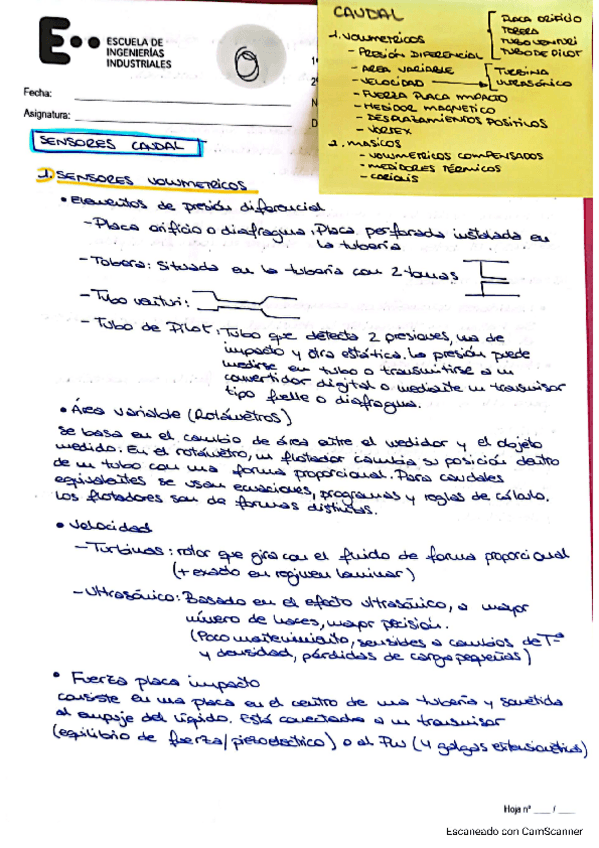 ESCUELA DE
INGENIERÍAS
INDUSTRIALES
6
Fecha:
Asignatura:
CAUDAL
1. VOLUMETRICOS
- PRESIÓN DIFERENCIAL
PLACA ORIFICIO
TOBERA
TUBO VENTURI
TUBO DE PILOT
- AREA VARIABLE
- VELOCIDAD
TURBINA
ULTRASÓNICO
- FUERZA PLACA IMPACTO
- MEDIDOR MAGNETICO
- DESPLAZAMIENTOS POSITIVOS
- VORTEX
2. MASICOS
- VOLUMETRICOS COMPENSADOS
- MEDIDORES TÉRMICOS
- CORIOLIS
SENSORES CAUDAL
1. SENSORES VOLUMETRICOS
• Elementos de presión diferencial
- Placa orificio o diafragma: Placa perforada instalada en
la tubería
- Tobera: Situada en la tubería con 2 tomas
- Tubo venturi:
- Tubo de Pilot: Tubo que detecta 2 presiones, una de
impacto y otra estática. La presión puede
medirse en tubo o transmitirse a un
convertidor digital o mediante un transmisor
tipo fuelle o diafragma.
• Área variable (Rotámetros)
se basa en el cambio de área entre el medidor y el objeto
medido. En el rotámetro, un flotador cambia su posición dentro
de un tubo con una forma proporcional. Para caudales
equivalentes se usan ecuaciones, programas y reglas de cálculo.
Los flotadores son de formas distintas.
• Velocidad
- Turbinas: rotor que gira con el fluido de forma proporcional
(+ exacto en regimen laminar)
- Ultrasónico: Basado en el efecto ultrasónico, a mayor
número de haces, mayor precisión.
(Poco mantenimiento, sensibles a cambios de Tª
y densidad, pérdidas de carga pequeñas)
• Fuerza placa impacto
consiste en una placa en el centro de una tubería y sometida
al empuje del líquido. Está conectada a un transmisor
(equilibrio de fuerza/piezoeléctrico) o al PW (4 galgas extensiométricas)
Hoja nº ___ / ___
Escaneado con CamScanner